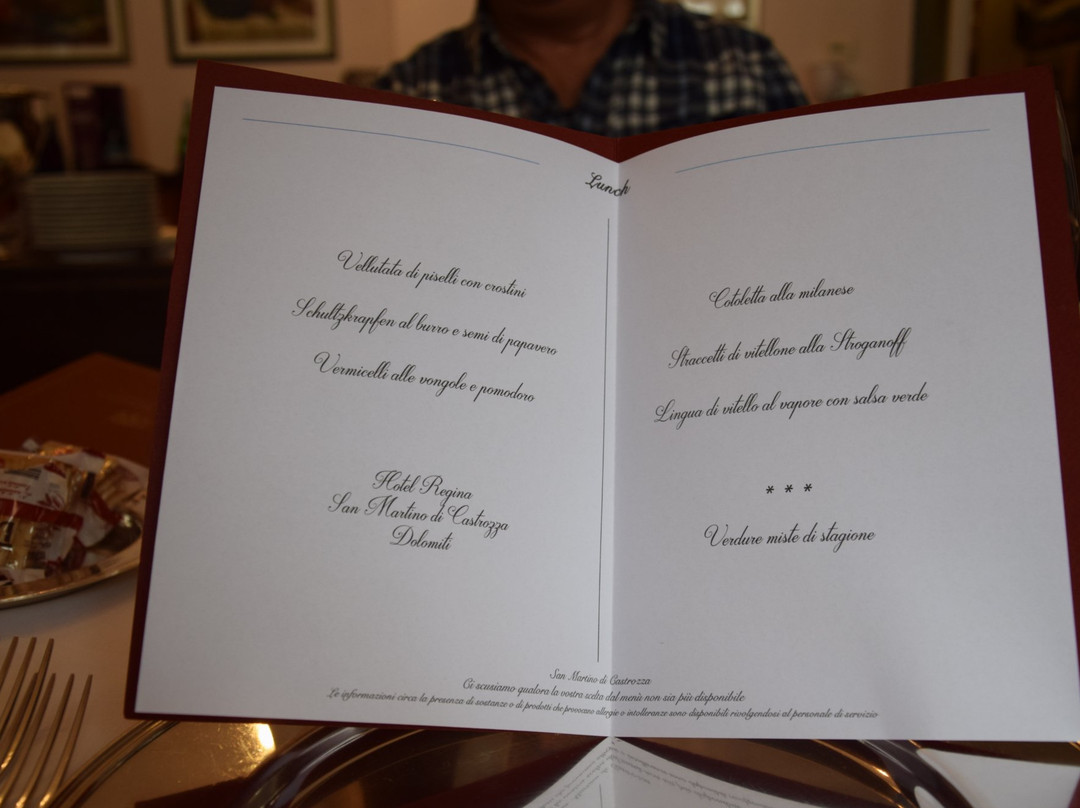 Lunch
Vellutata di piselli con crostini
Schultzkrapfen al burro e semi di papavero
Vermicelli alle vongole e pomodoro
Hotel Regina
San Martino di Castrozza
Dolomiti
Cotoletta alla milanese
Straccetti di vitellone alla Stroganoff
Lingua di vitello al vapore con salsa verde
* * *
Verdure miste di stagione
San Martino di Castrozza
Ci scusiamo qualora la vostra scelta dal menù non sia più disponibile
Le informazioni circa la presenza di sostanze o di prodotti che provocano allergie o intolleranze sono disponibili rivolgendosi al personale di servizio